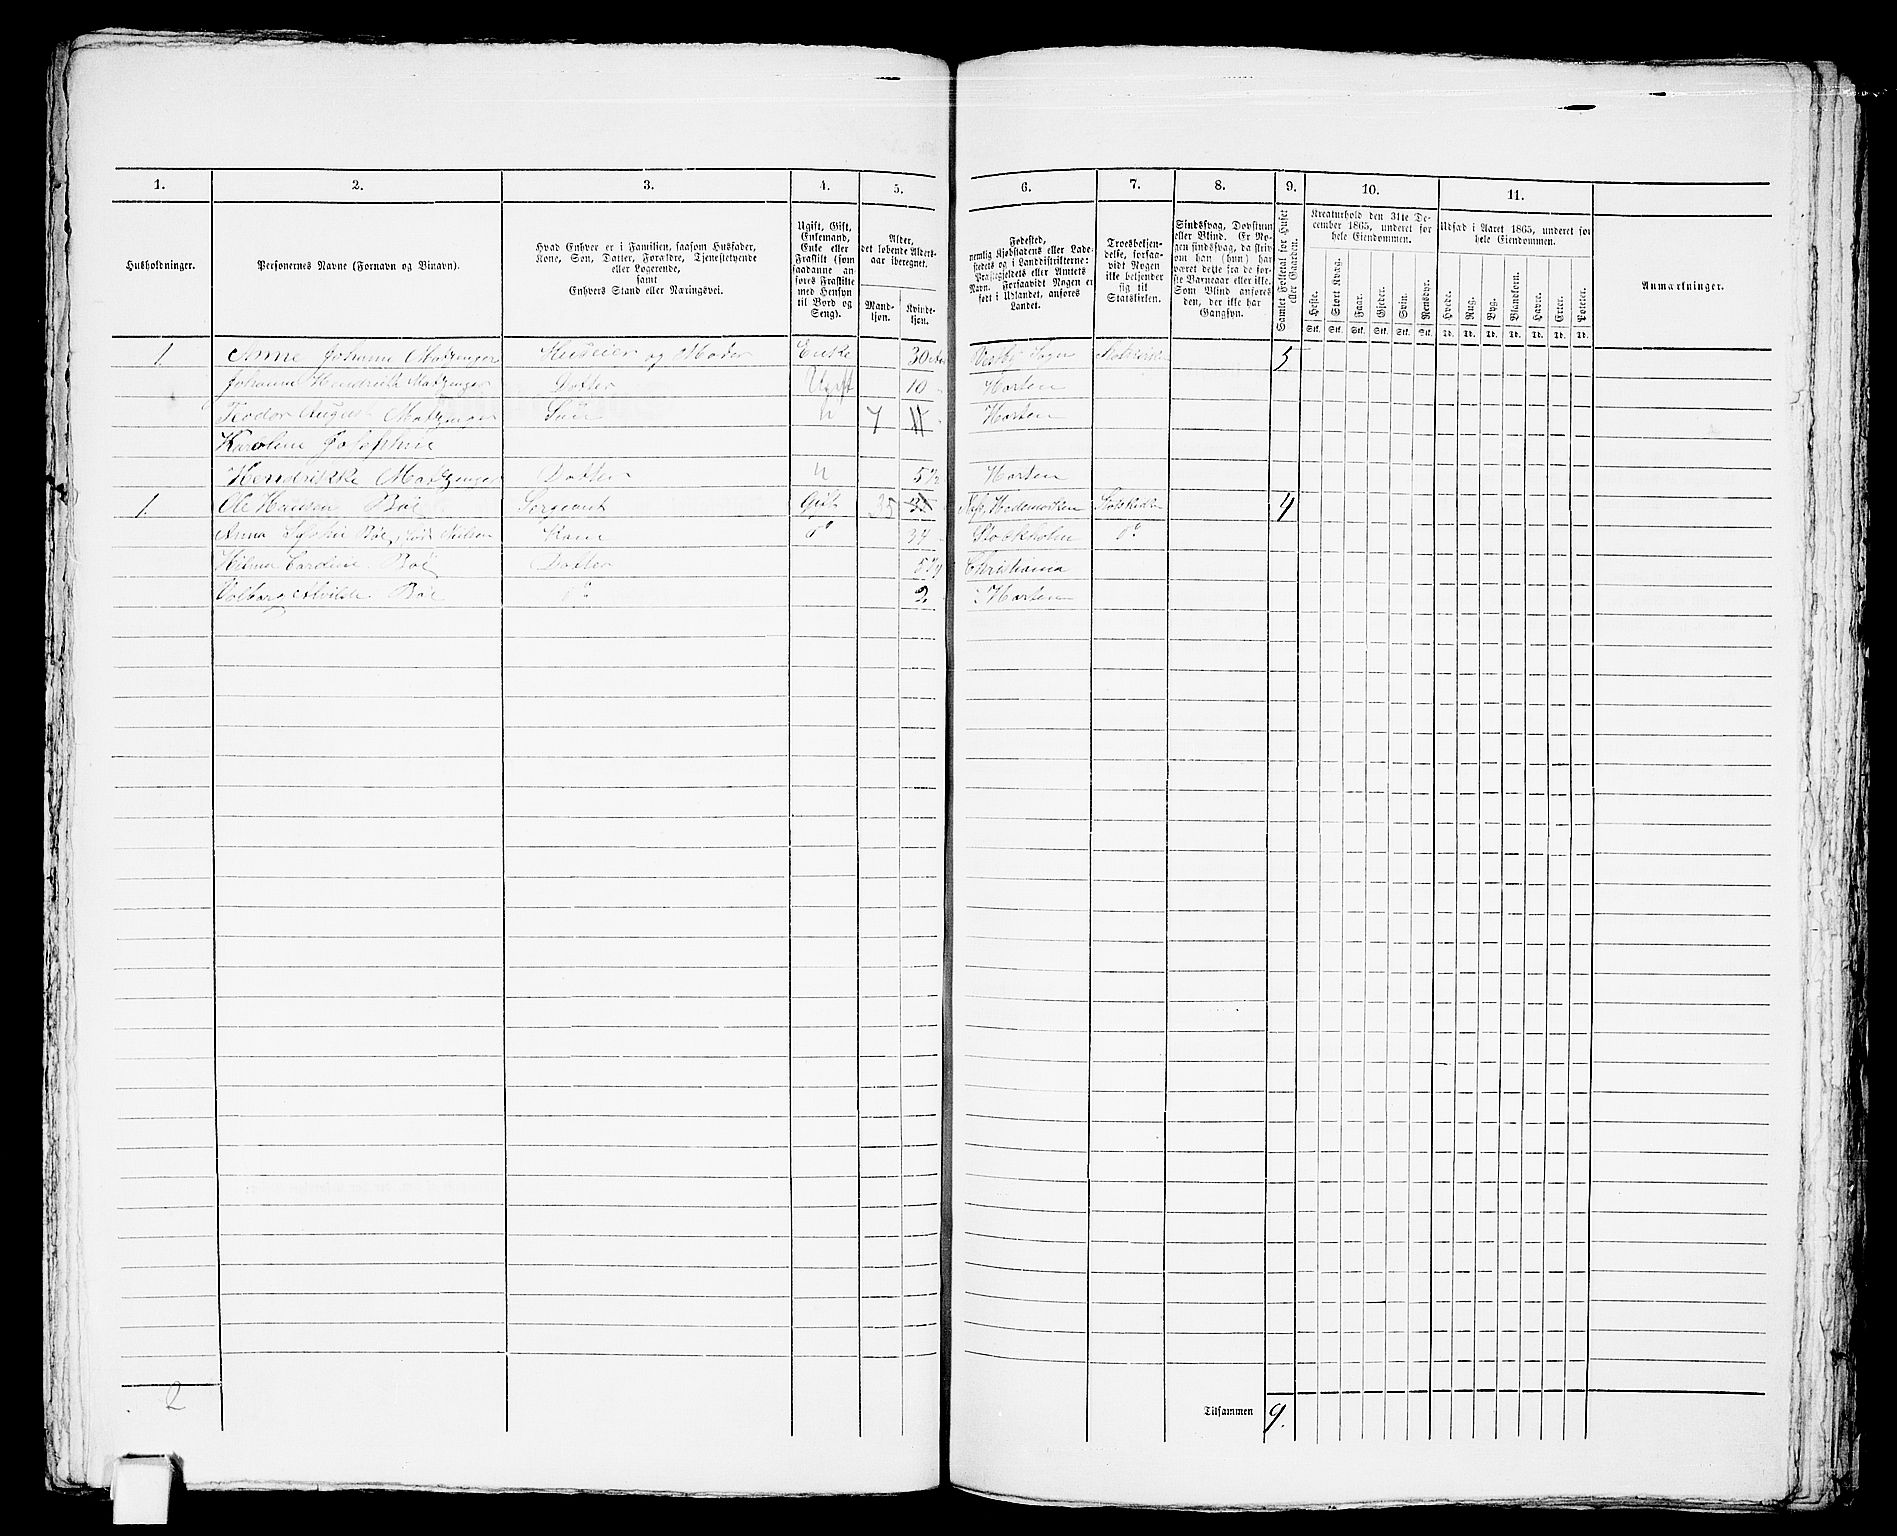 1. 2. 3. 4. 5. 6. 7. 8. 9. 10. 11.
Husholdninger.
Personernes Navne (Fornavn og Binavn).
Hvad Enhver er i Familien, saasom Husfader,
Kone, Søn, Datter, Forældre, Tjenestetyende
eller Logerende,
samt
Enhvers Stand eller Næringsvei.
Ugift, Gift,
Enkemand,
Enke eller
Fraskilt (som
saadanne an-
føres Fraskilte
med Hensyn
til Bord og
Seng).
Alder,
det løbende Alders-
aar iberegnet.
Mand-
kjøn.
Kvinde-
kjøn.
Fødested,
nemlig Kjøbstadens eller Lade-
stedets og i Landdistrikterne:
Præstegjeldets eller Amtets
Navn. Forsaavidt Nogen er
født i Udlandet, anføres
Landet.
Troesbekjen-
delse, forsaa-
vidt Nogen
ikke bekjender
sig til
Statskirken.
Sindssvag, Døvstum
eller Blind. Er No-
gen sindssvag, da skriv
om han (hun) har
været dette fra de før-
ste Barneaar eller ikke.
Som Blind anføres
den, der ikke har
Gangsyn.
Samlet Folketal for Huset
eller Gaarden.
Kreaturhold den 31te De-
cember 1865, underet for
hele Eiendommen.
Heste.
Stort Kvæg.
Faar.
Gjeder.
Svin.
Rensdyr.
Stk. Stk. Stk. Stk. Stk. Stk.
Udsæd i Aaret 1865, underet for
hele Eiendommen.
Hvede.
Rug.
Byg.
Blandkorn.
Havre.
Erter.
Poteter.
Td. Td. Td. Td. Td. Td. Td.
Anmærkninger.
1. Anne Johanne Matzenger Huseier og Moder Enke 30 Vestby Sogn Statskirke 5
Johanne Hendrikke Matzenger Datter Ugift 10 Horten
Teodor August Matzenger Søn 7 Horten
Karoline Josephine
Hendrikke Matzenger Datter 5½ Horten
1. Ole Hansen Bøe Sergeant Gift 35 Hedemarken Statskirken 4
Anna Bøe født Nielsen Kone do 34 Stockholm do
Hilma Cardine Bøe Datter Christiania
Valborg Alvilde Bøe do 2 Horten
2
Tilsammen 9.